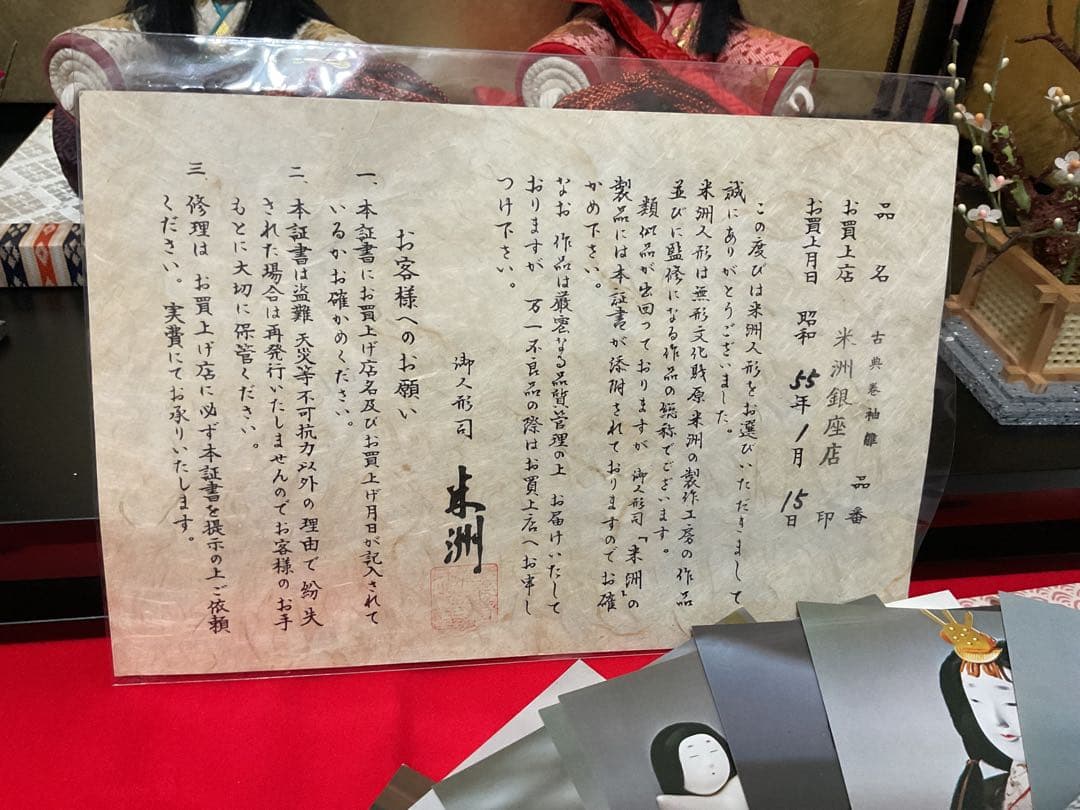 品名 古典巻袖雛 品番
お買上店 米洲銀座店 印
お買上月日 昭和55年1月15日
この度びは米洲人形をお選びいただきまして
誠にありがとうございました。
米洲人形は無形文化財原米洲の製作工房の作品
並びに監修になる作品の総称でございます。
類似品が出回っておりますが 御人形司「米洲」の
製品には本証書が添附されておりますのでお確
かめ下さい。
なお 作品は厳密なる品質管理の上 お届けいたして
おりますが 万一不良品の際はお買上店へお申し
つけ下さい。
御人形司 米洲
お客様へのお願い
一、本証書にお買上げ店名及びお買上げ月日が記入されて
いるかお確かめください。
二、本証書は盗難 天災等不可抗力以外の理由で紛失
された場合は再発行いたしませんのでお客様のお手
もとに大切に保管ください。
三、修理は お買上げ店に必ず本証書を提示の上ご依頼
ください。実費にてお承りいたします。